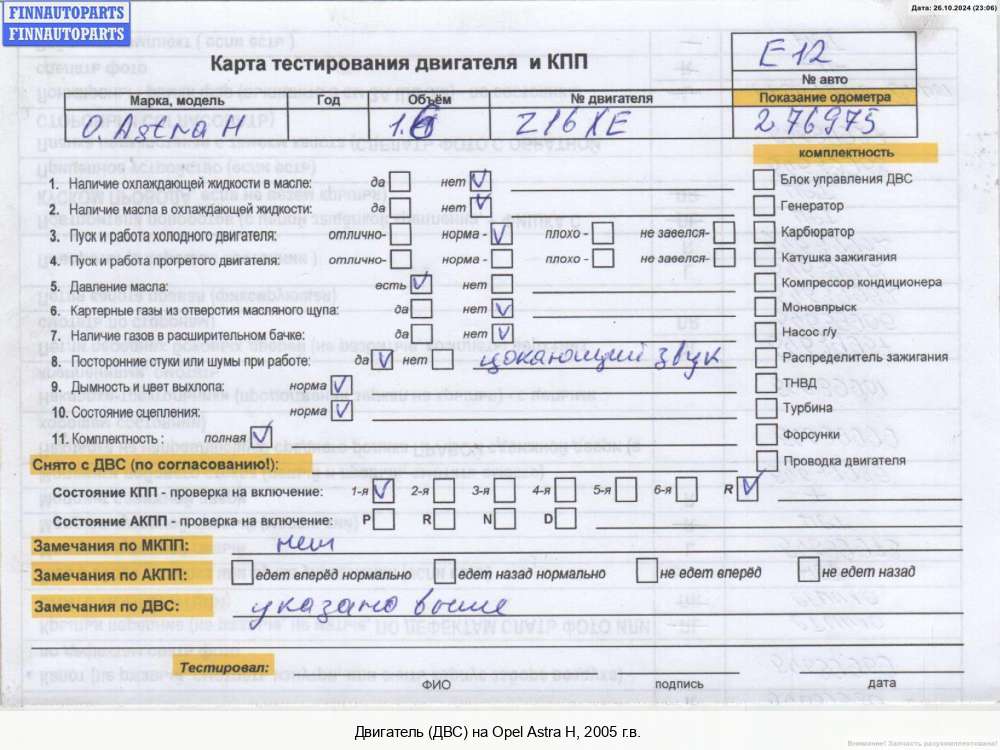 FINNAUTOPARTS
FINNAUTOPARTS
Дата: 26.10.2024 (23:06)
Карта тестирования двигателя и КПП
E12
№ авто
Марка, модель Год Объём № двигателя Показание одометра
O. Astra H 1.6 Z16XE 276975
комплектность
1. Наличие охлаждающей жидкости в масле: да нет Блок управления ДВС
2. Наличие масла в охлаждающей жидкости: да нет Генератор
3. Пуск и работа холодного двигателя: отлично- норма - плохо - не завелся- Карбюратор
4. Пуск и работа прогретого двигателя: отлично- норма - плохо - не завелся- Катушка зажигания
5. Давление масла: есть нет Компрессор кондиционера
6. Картерные газы из отверстия масляного щупа: да нет Моновпрыск
7. Наличие газов в расширительном бачке: да нет Насос г/у
8. Посторонние стуки или шумы при работе: да нет цокающий звук Распределитель зажигания
9. Дымность и цвет выхлопа: норма ТНВД
10. Состояние сцепления: норма Турбина
11. Комплектность : полная Форсунки
Снято с ДВС (по согласованию!): Проводка двигателя
Состояние КПП - проверка на включение: 1-я 2-я 3-я 4-я 5-я 6-я R
Состояние АКПП - проверка на включение: P R N D
Замечания по МКПП: нет
Замечания по АКПП: едет вперёд нормально едет назад нормально не едет вперёд не едет назад
Замечания по ДВС: указано выше
Тестировал:
ФИО подпись дата
Двигатель (ДВС) на Opel Astra H, 2005 г.в.
Внимание! Запчасть разукомплектована!